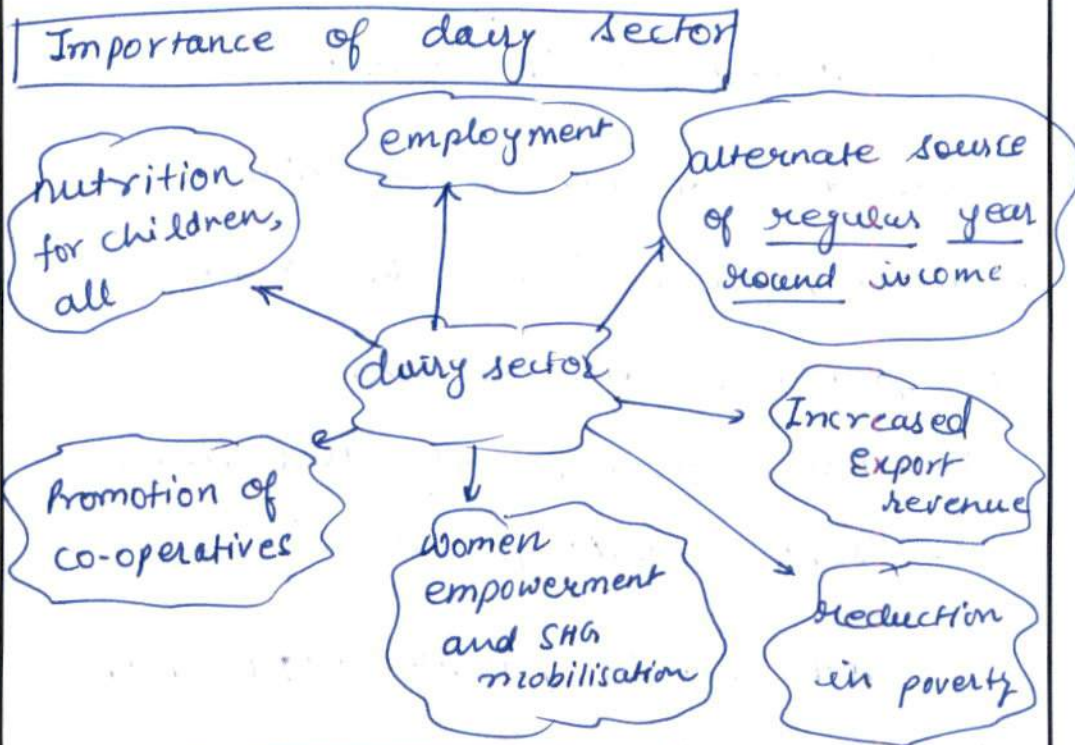 Importance of dairy sector
employment
nutrition
for children,
all
alternate source
of regular year
round income
dairy sector
Increased
Export
revenue
Promotion of
co-operatives
women
empowerment
and SHG
mobilisation
reduction
in poverty